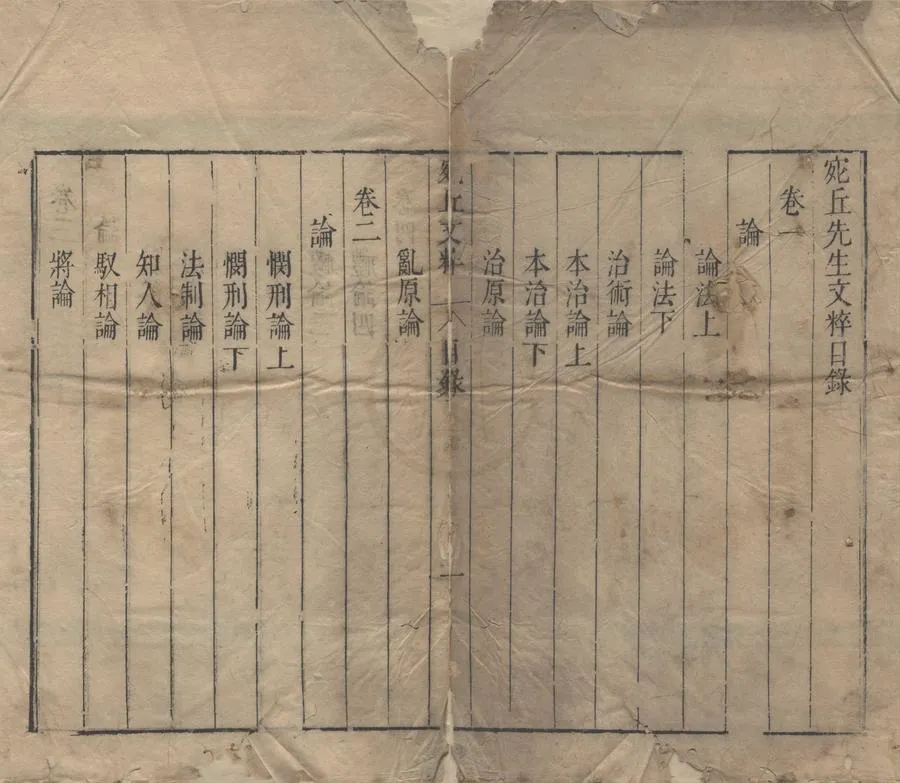 宛丘先生文粹目錄
卷一
論
論法上
論法下
治術論
本治論上
本治論下
治原論
宛丘文粹 目錄 一
亂原論
卷二
論
憫刑論上
憫刑論下
法制論
知人論
馭相論
將論